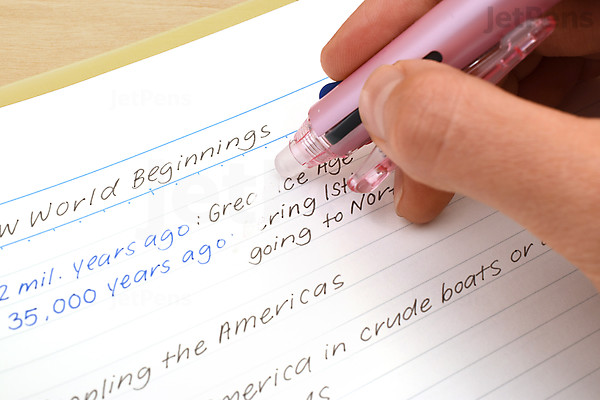 JetPens
JetPens
w World Beginnings
2 mil. years ago: Grea ce Age
35,000 years ago: ring Ist
going to Nor
opling the Americas
merica in crude boats or